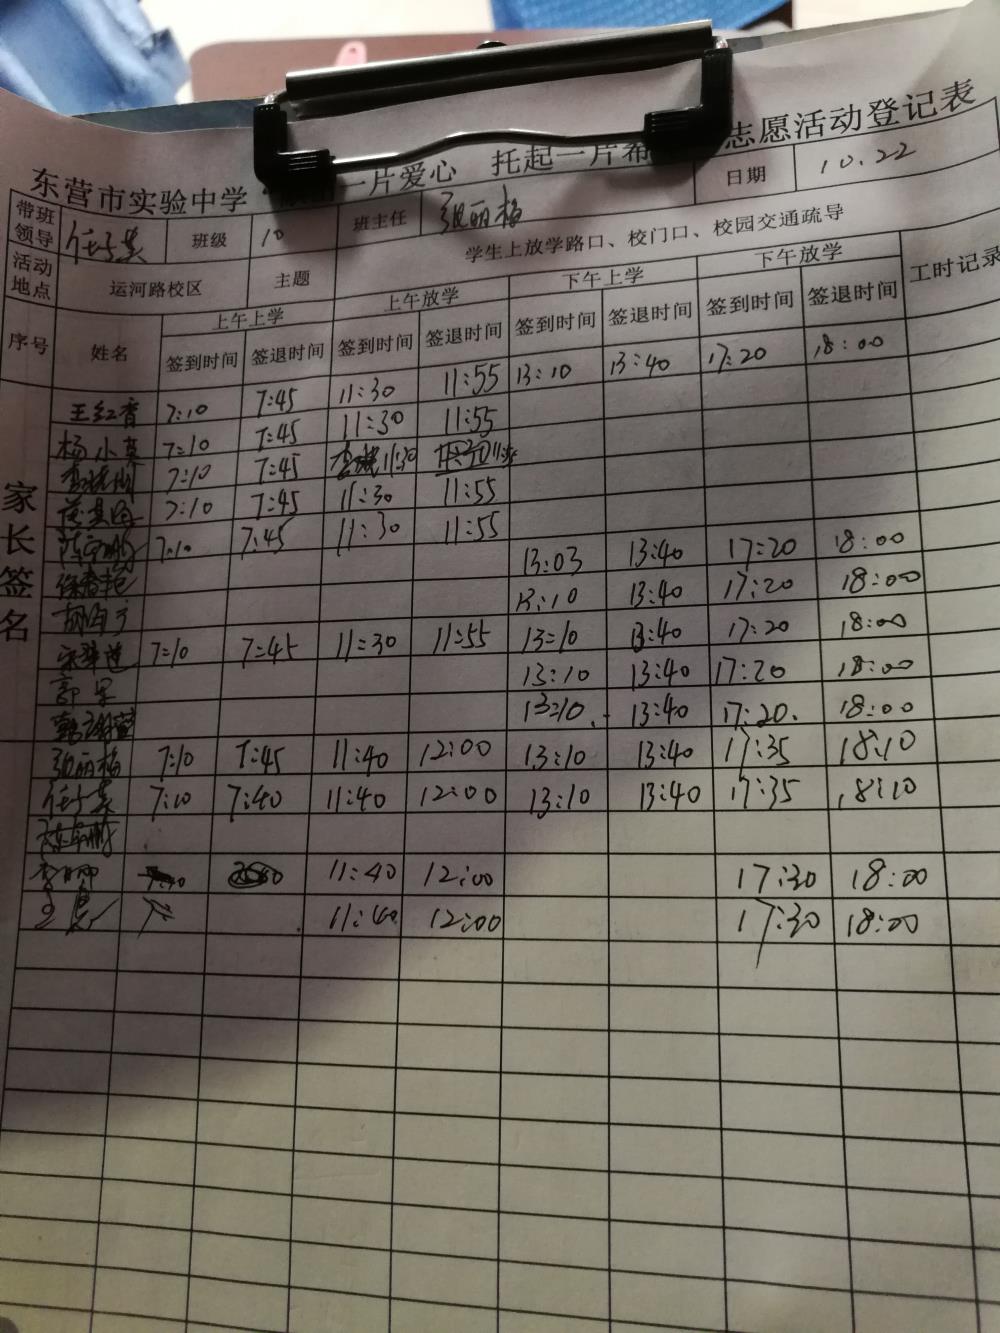 东营市实验中学 一片爱心 托起一片希 志愿活动登记表
带班领导 任 英 班级 10 班主任 张丽梅 日期 10.22
活动地点 运河路校区 主题 学生上放学路口、校门口、校园交通疏导
序号 姓名 上午上学 上午放学 下午上学 下午放学 工时记录
签到时间 签退时间 签到时间 签退时间 签到时间 签退时间 签到时间 签退时间
家长签名
王红香 7:10 7:45 11:30 11:55 13:10 13:40 17:20 18:00
杨小英 7:10 7:45 11:30 11:55
7:10 7:45 11:30
7:10 7:45 11:30 11:55
7:10 7:45 11:30 11:55
13:03 13:40 17:20 18:00
13:10 13:40 17:20 18:00
7:10 7:45 11:30 11:55 13:10 13:40 17:20 18:00
郭 13:10 13:40 17:20 18:00
13:10 13:40 17:20 18:00
张丽梅 7:10 7:45 11:40 12:00 13:10 13:40 17:35 18:10
任 英 7:10 7:40 11:40 12:00 13:10 13:40 17:35 18:10
李 11:40 12:00 17:30 18:00
王 11:40 12:00 17:30 18:00